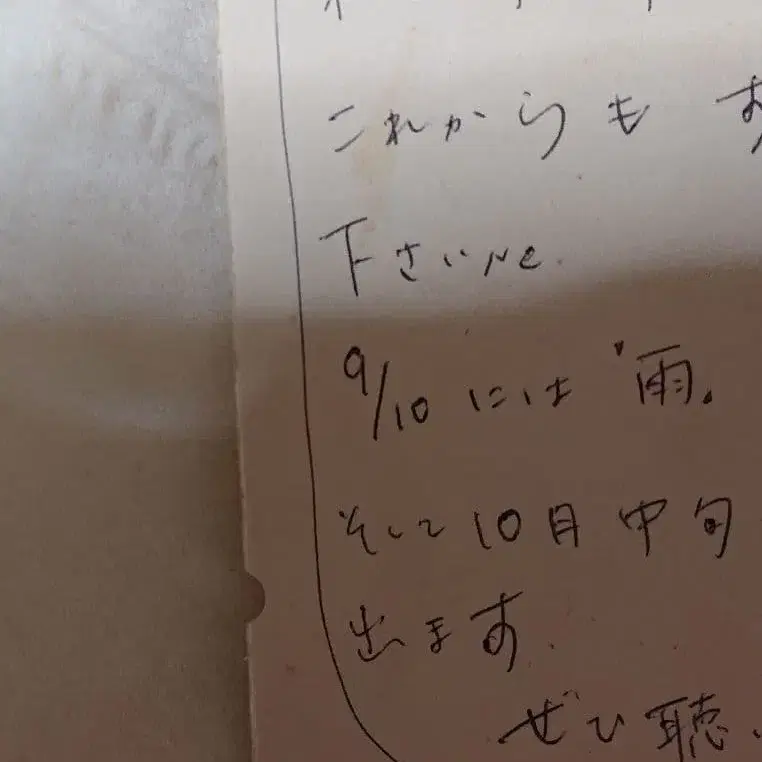 これからも
下さいね.
9/10 には "雨。
そして 10月中旬
出ます.
ぜひ聴